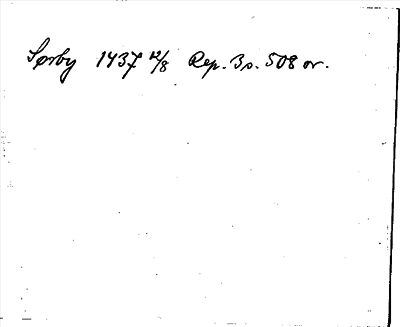 Sørby 1437 12/8 Rep. 3s. 508 or.